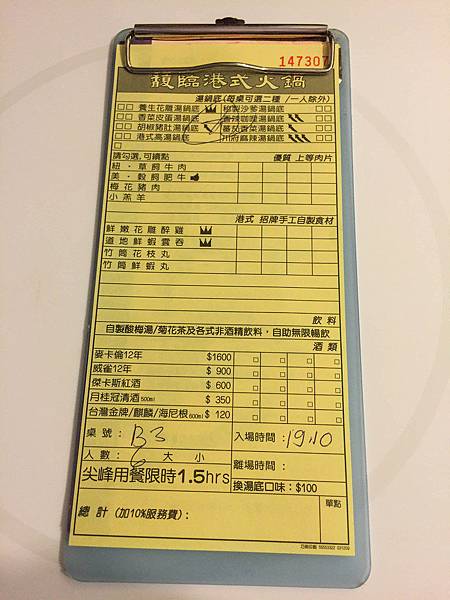 147307
馥臨港式火鍋
湯鍋底(每桌可選二種 /一人除外)
養生花雕湯鍋底 秘製沙爹湯鍋底
香菜皮蛋湯鍋底 香辣咖哩湯鍋底
胡椒豬肚湯鍋底 蕃茄香菜湯鍋底
港式高湯鍋底 川府麻辣湯鍋底
請勾選,可續點 優質 上等肉片
紐．草飼牛肉
美．穀飼肥牛
梅花豬肉
小羔羊
港式 招牌手工自製食材
鮮嫩花雕醉雞
道地鮮蝦雲吞
竹筒花枝丸
竹筒鮮蝦丸
飲料
自製酸梅湯/菊花茶及各式非酒精飲料，自助無限暢飲
酒類
麥卡倫12年 $1600
威雀12年 $ 900
傑卡斯紅酒 $ 600
月桂冠清酒500ml $ 350
台灣金牌/麒麟/海尼根600ml $ 120
桌號：B3 入場時間：19:10
人數：6 大 小 離場時間：
尖峰用餐限時1.5hrs 換湯底口味：$100
總計(加10%服務費)： 單點